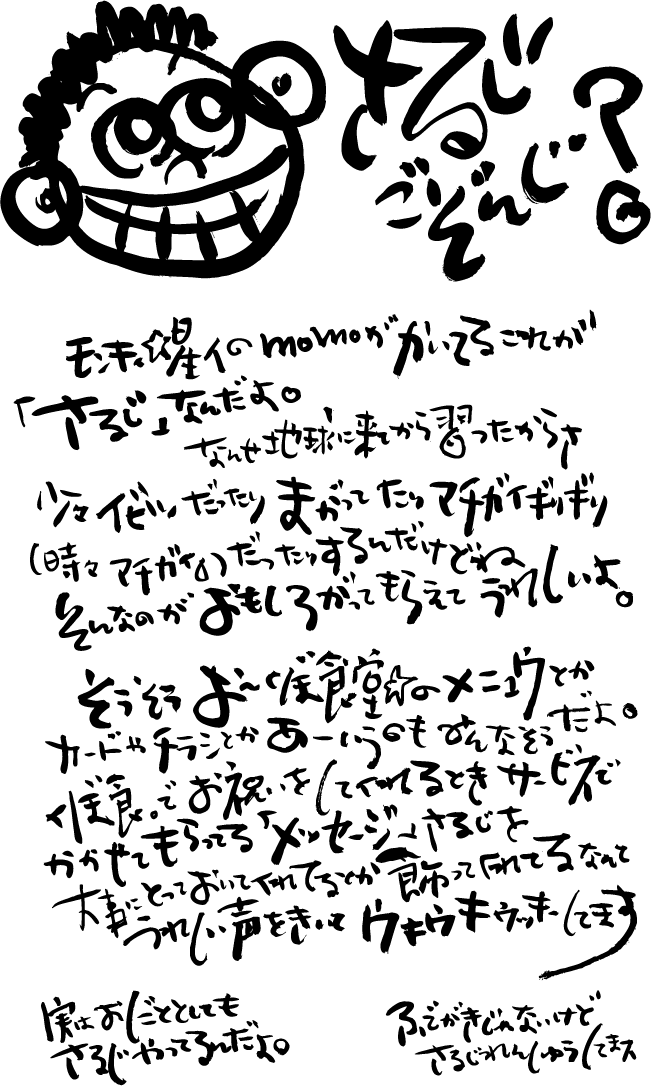 さるじ
ごぞんじ?
モンキィ☆星人のmomoが かいてるこれが
「さるじ」なんだよ。
なんせ地球に来てから習ったからさ
少々イビツだったり まがってたり マチガイギリギリ
(時々マチガイ)だったりするんだけどね
そんなのが おもしろがってもらえて うれしいよ。
そうそう お〜くぼ食堂☆のメニュウとか
カードや チラシとか あーいうのも みんなそうだよ。
くぼ食。で お祝いを してくれるとき サービスで
かかせてもらってる「メッセージ」さるじを
大事にとっておいてくれてるとか 飾ってくれてるなんて
うれしい声をきいて ウキウキウッキーしてます
実はおしごととしても
さるじやってるんだよ。
ふでがきじゃないけど
さるじれんしゅうしてまス